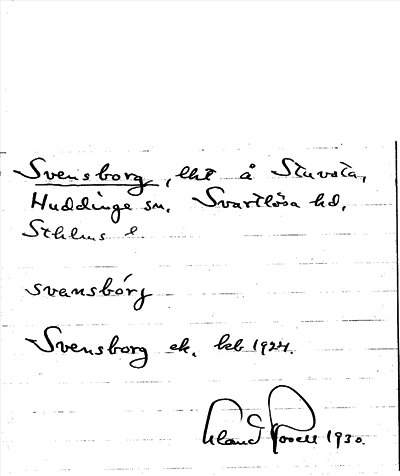 Svensborg, lht å Stuvsta,
Huddinge sn. Svartlösa hd.
Sthlms l.
svansbórg
Svensborg ek. kbl 1924.
Erland 1930.